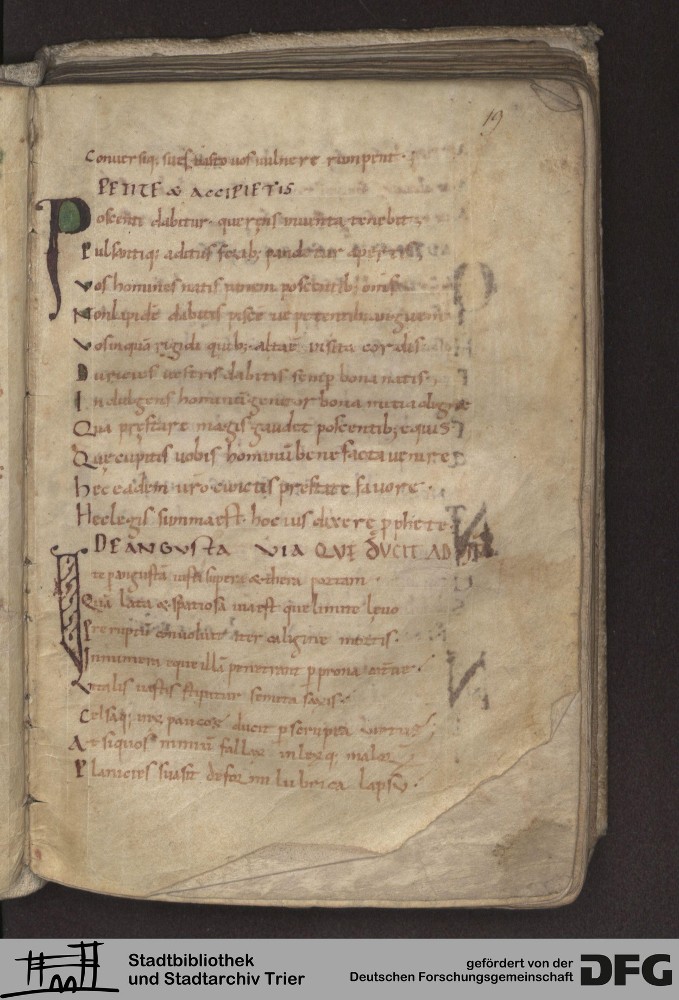 19
Conuersiq; sues uasto uos uulnere rumpent.
PETITE & ACCIPIETIS
Poscenti dabitur. querens inuenta tenebit.
Pulsantiq; aditus forib; pandetur apertis
Vos homines natis panem poscentib;
Non lapidē dabitis piscē ue petentib; anguem
Vos inquā rigidi quib; ē altae uisita cordis
Duricies uestris dabitis semp bona natis.
Indulgens hominū genitor bona
Qua prestare magis gaudet poscentib; equis
Que cupitis uobis hominū bene facta uenire
hec eadem cunctis prestate fauore.
Hec legis summa est. hoc ius dixere pphete.
DE ANGUSTA VIA QUE DUCIT AD
te p angustā iusti super & thera portam.
Qua lata & spatiosa uia est que limite leuo
Preruptū conuoluit ater caligine mortis.
Innumera eque illā penetrant p prona cateruae
Vitalis iustis stipatur semita saxis.
Celsaq; uix paucos ducit p scrupea uirtus.
At si quos nimiū fallax inlexq; malorū
Planicies suasit deformi lubrica lapsu.
Stadtbibliothek
und Stadtarchiv Trier
gefördert von der
Deutschen Forschungsgemeinschaft
DFG